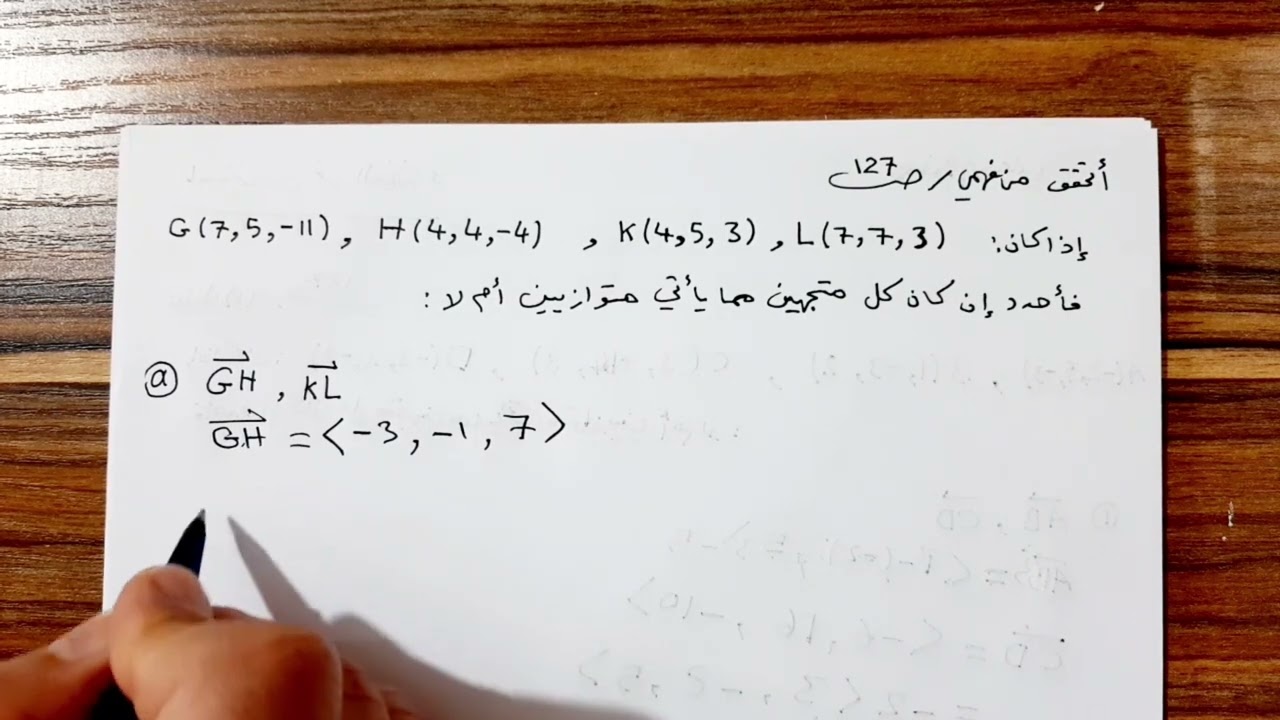 أتحقق من فهمي / صـ127
إذا كان: G(7,5,-11), H(4,4,-4) , K(4,5,3), L(7,7,3)
فأحدد إن كان كل متجهين مما يأتي متوازيين أم لا:
ⓐ GH⃗, KL⃗
GH⃗ = <-3, -1, 7>